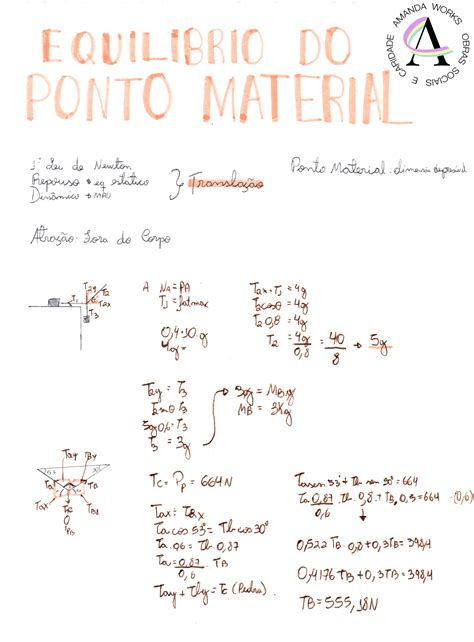 EQUILIBRIO DO
PONTO MATERIAL
AMANDA WORKS OBRAS SOCIAIS E CARIDADE
A
1ª Lei de Newton
Repouso • eq estático
Dinâmico → MRU
} Translação
Ponto Material: dimensão desprezível
Atração: Fora do Corpo
T1
T2y
T2
T2x
T3
A NA = PA
T1 = fatmax
0,4·10·g
4g =
T2x = T1 = 4g
T2cosθ = 4g
T2 0,8 = 4g
T2 = 4g/0,8 = 40/8 → 5g
T2y = T3
T2senθ T3
5g0,6 = T3
T3 = 3g
3g = MB·g
MB = 3Kg
Tay TBy
Ta TB
Tax TBx
Tc
Tc = Pp = 664N
Tax = TBx
Ta cos 53° = Tb cos 30°
Ta · 0,6 = Tb · 0,87
Ta = 0,87 · TB
0,6
Tay + Tby = Tc (Pedra)
Ta sen 53° + Tb sen 30° = 664
Ta 0,87 · Tb · 0,8 + TB · 0,5 = 664 · (0,6)
0,6
0,522 TB · 0,8 + 0,3TB = 398,4
0,4176 TB + 0,3 TB = 398,4
TB = 555,18N